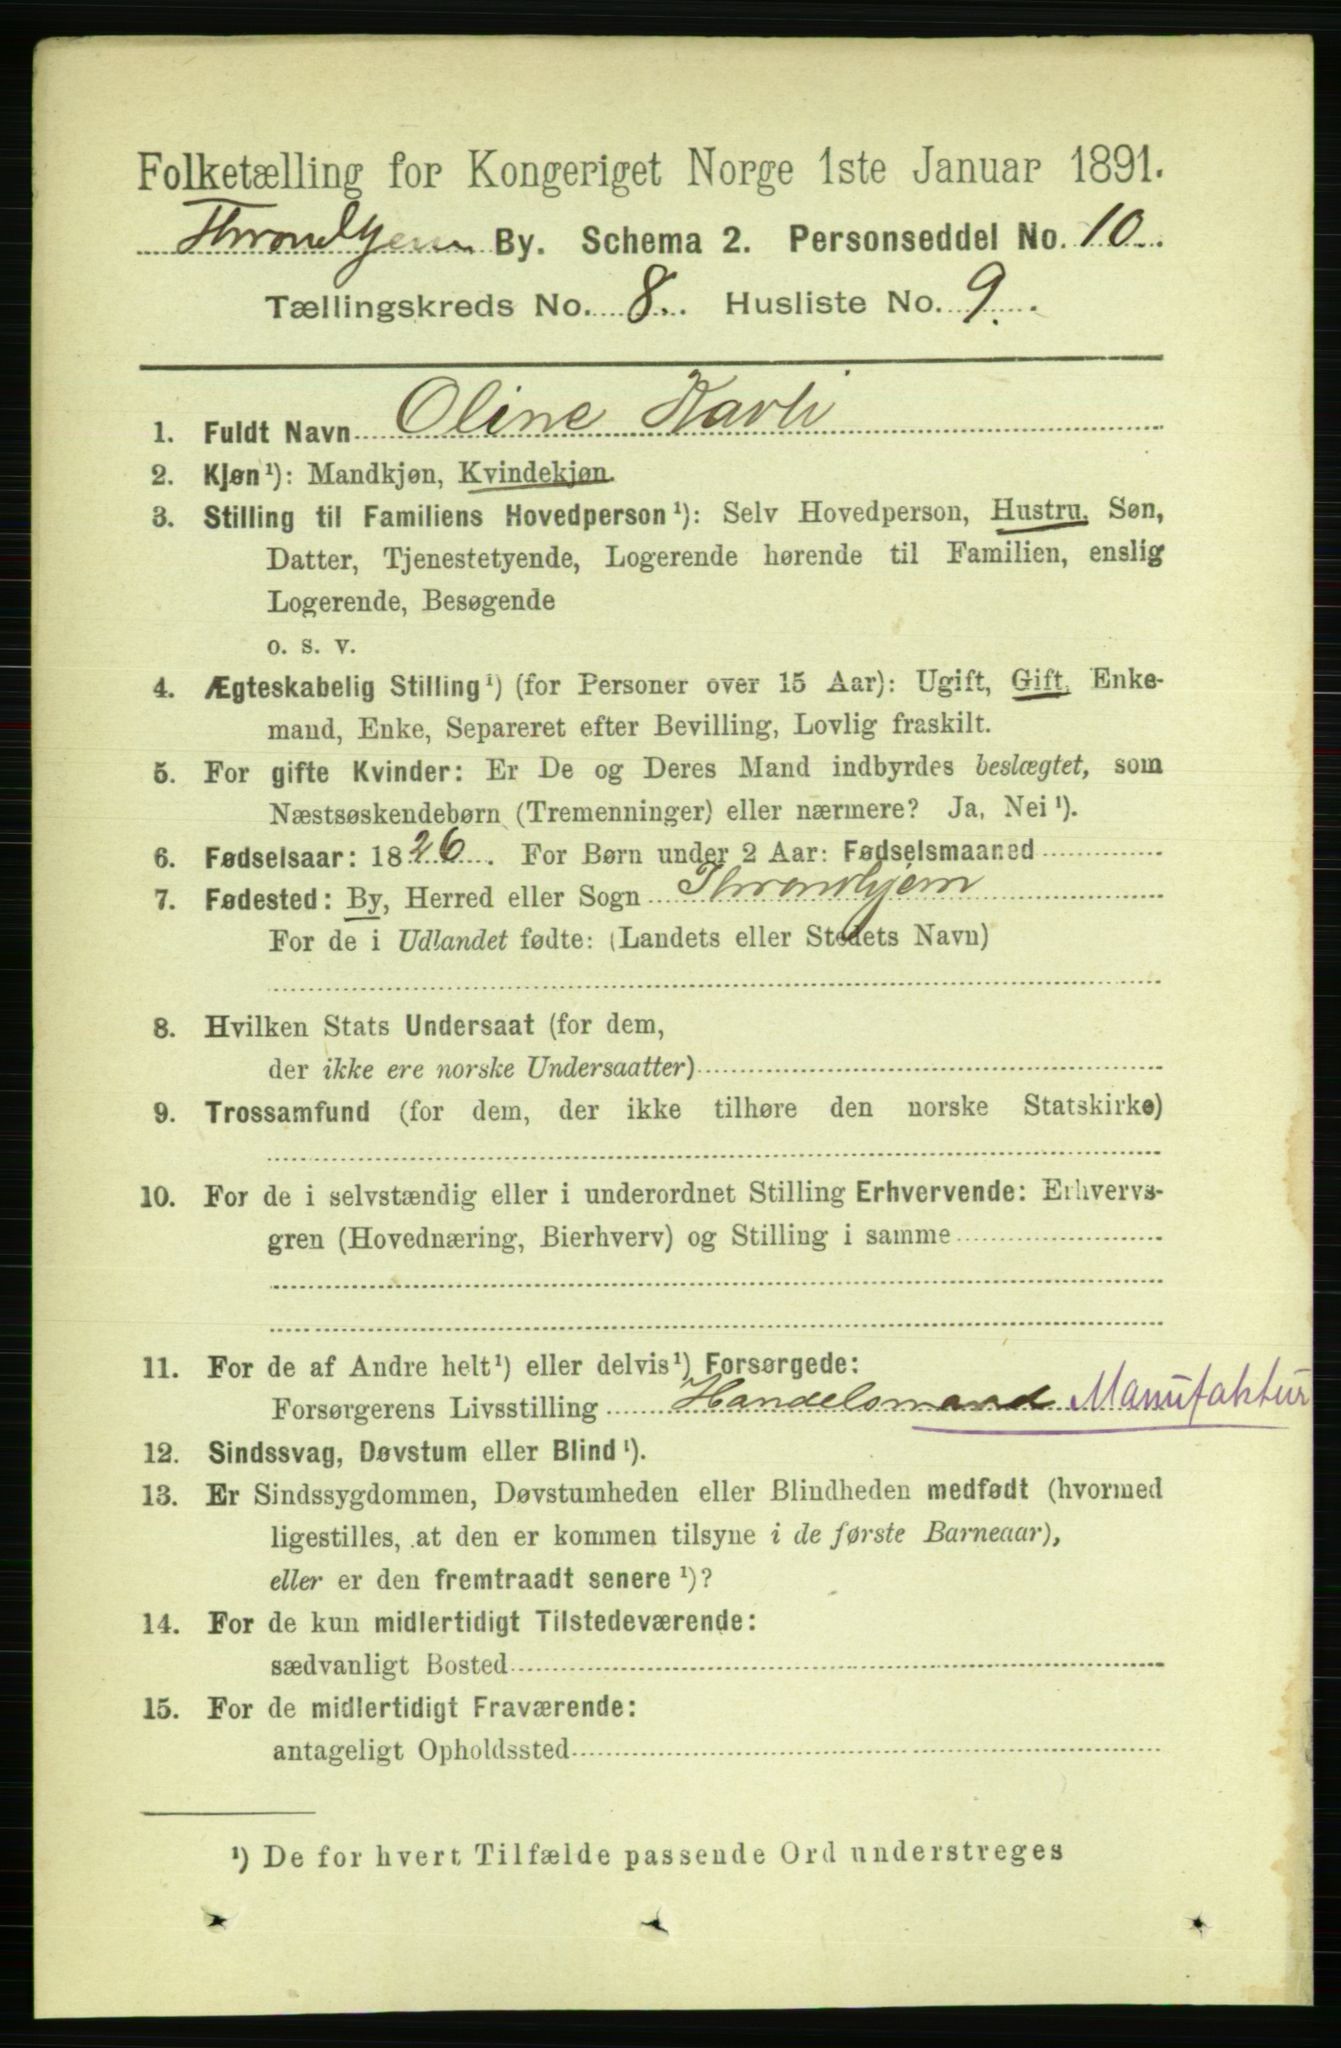 Folketælling for Kongeriget Norge 1ste Januar 1891.
Throndhjem By. Schema 2. Personseddel No. 10.
Tællingskreds No. 8. Husliste No. 9.
1. Fuldt Navn Oline Kavli
2. Kjøn¹): Mandkjøn, Kvindekjøn.
3. Stilling til Familiens Hovedperson¹): Selv Hovedperson, Hustru, Søn,
Datter, Tjenestetyende, Logerende hørende til Familien, enslig
Logerende, Besøgende
o. s. v.
4. Ægteskabelig Stilling¹) (for Personer over 15 Aar): Ugift, Gift, Enke-
mand, Enke, Separeret efter Bevilling, Lovlig fraskilt.
5. For gifte Kvinder: Er De og Deres Mand indbyrdes beslægtet, som
Næstsøskendebørn (Tremenninger) eller nærmere? Ja, Nei¹).
6. Fødselsaar: 1826. For Børn under 2 Aar: Fødselsmaaned
7. Fødested: By, Herred eller Sogn Throndhjem
For de i Udlandet fødte: (Landets eller Stedets Navn)
8. Hvilken Stats Undersaat (for dem,
der ikke ere norske Undersaatter)
9. Trossamfund (for dem, der ikke tilhøre den norske Statskirke)
10. For de i selvstændig eller i underordnet Stilling Erhvervende: Erhvervs-
gren (Hovednæring, Bierhverv) og Stilling i samme
11. For de af Andre helt¹) eller delvis¹) Forsørgede:
Forsørgerens Livsstilling Handelsmand Manufaktur
12. Sindssvag, Døvstum eller Blind¹).
13. Er Sindssygdommen, Døvstumheden eller Blindheden medfødt (hvormed
ligestilles, at den er kommen tilsyne i de første Barneaar),
eller er den fremtraadt senere¹)?
14. For de kun midlertidigt Tilstedeværende:
sædvanligt Bosted
15. For de midlertidigt Fraværende:
antageligt Opholdssted
¹) De for hvert Tilfælde passende Ord understreges